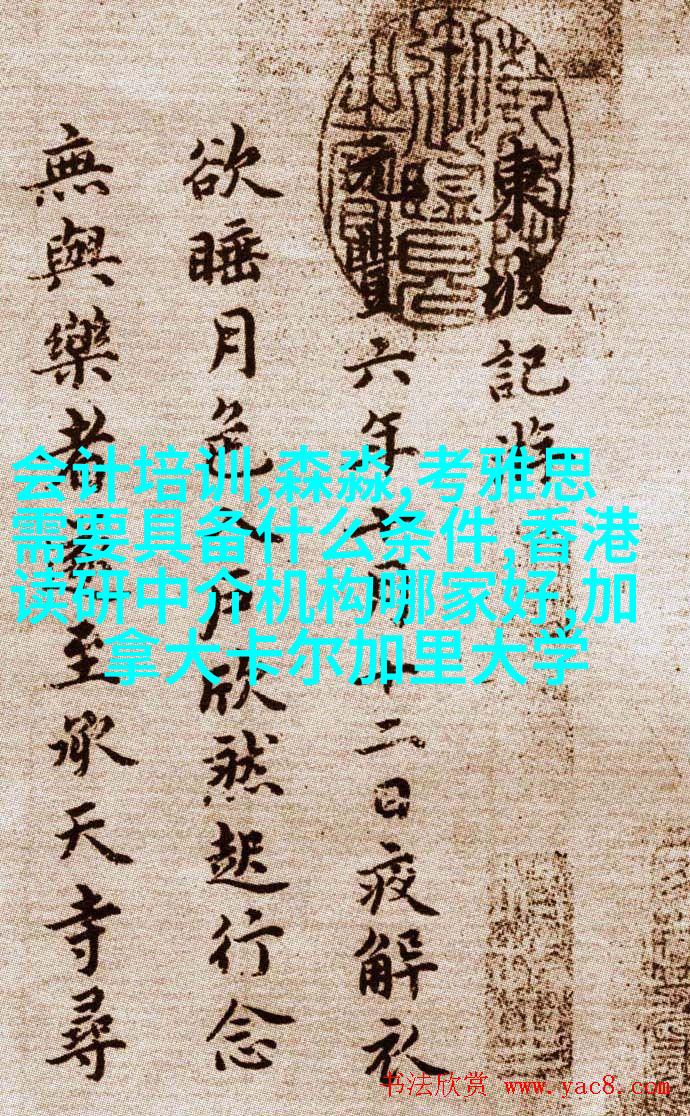 東坡記游
元豐六年十月十二日夜解衣
欲睡月色入戶欣然起行念
無與樂者遂至承天寺尋
会计培训,森淼,考雅思
需要具备什么条件,香港
读研中介机构哪家好,加
拿大卡尔加里大学
书法欣赏 www.yac8.com